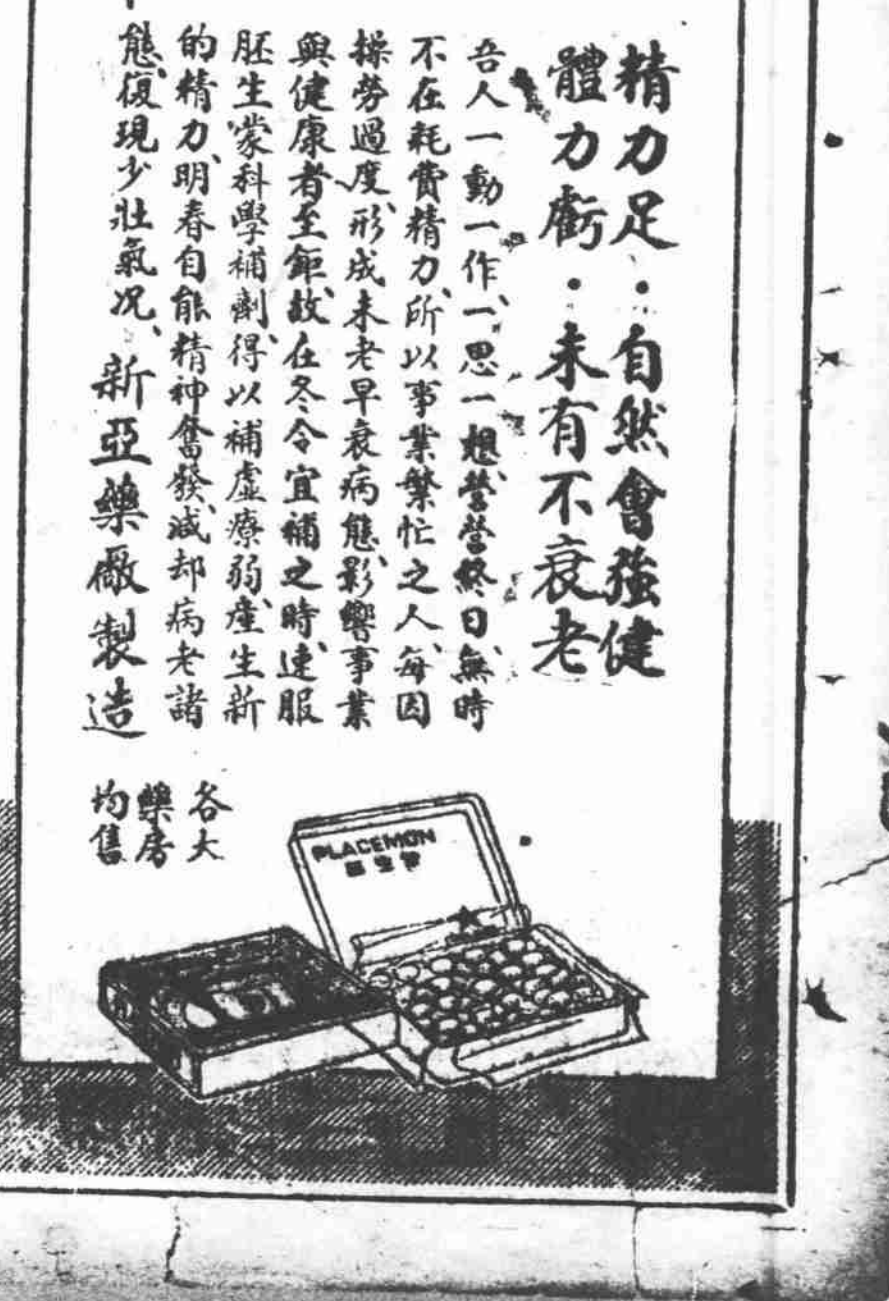 精力足·自然會強健
體力虧·未有不衰老
吾人一動一作、一思一想、營營終日、無時
不在耗費精力、所以事業繁忙之人、每因
操勞過度、形成未老早衰病態、影響事業
與健康者至鉅、故在冬令宜補之時、速服
胚生蒙科學補劑、得以補虛療弱、產生新
的精力、明春自能精神奮發、減却病老諸
態、復現少壯氣况、
新亞藥廠製造
各大
藥房
均售
PLACEMON
胚生蒙